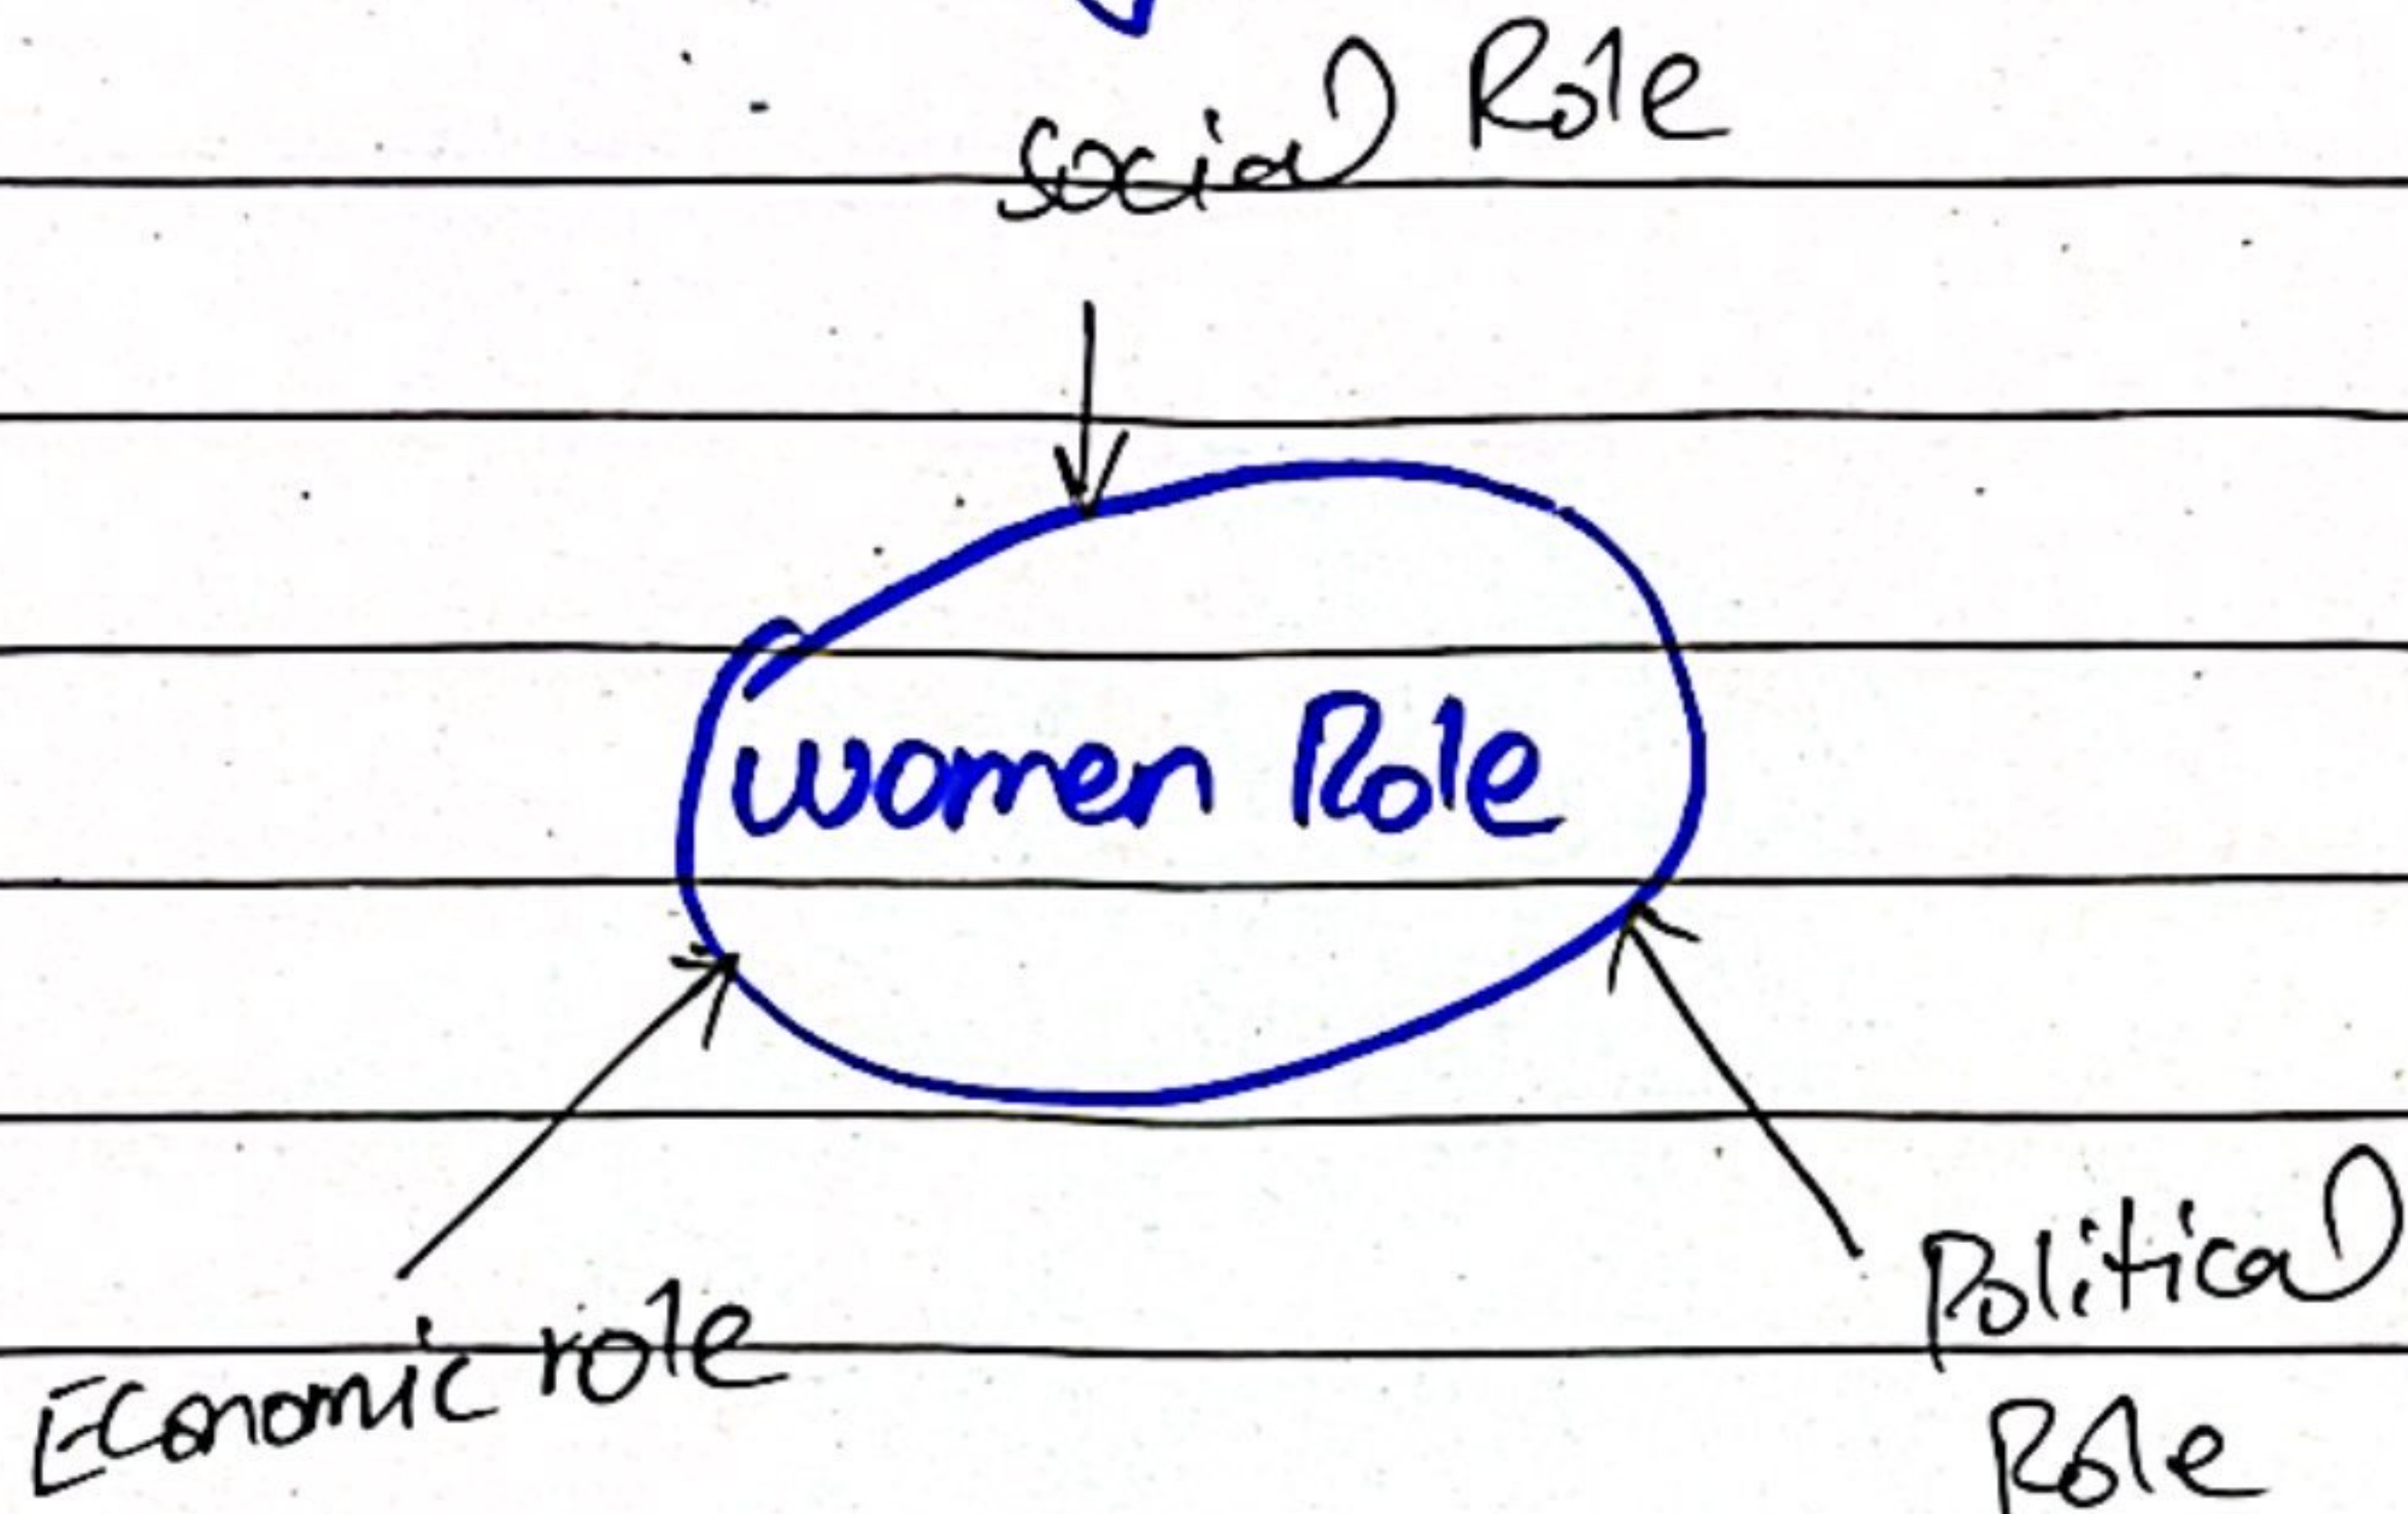 social Role
women Role
Economic role
Political
Role